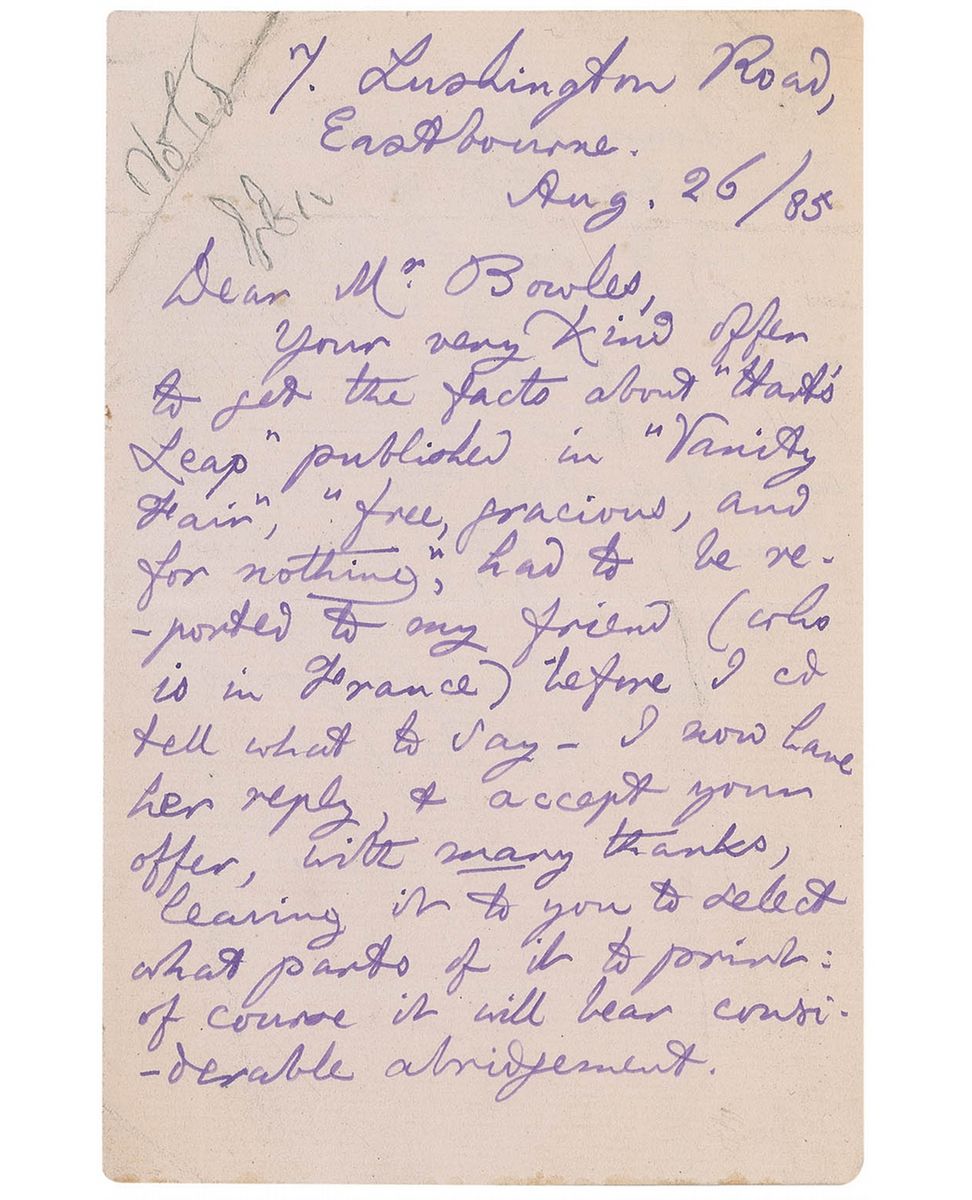 Notes
7. Lushington Road,
Eastbourne.
Aug. 26/85
Dear Mr Bowles,
Your very kind offer
to get the facts about "Hart's
Leap" published in "Vanity
Fair", "free, gracious, and
for nothing", had to be re-
-ported to my friend (who
is in France) before I cd
tell what to say – I now have
her reply, & accept your
offer, with many thanks,
leaving it to you to select
what parts of it to print:
of course it will bear consi-
-derable abridgement.